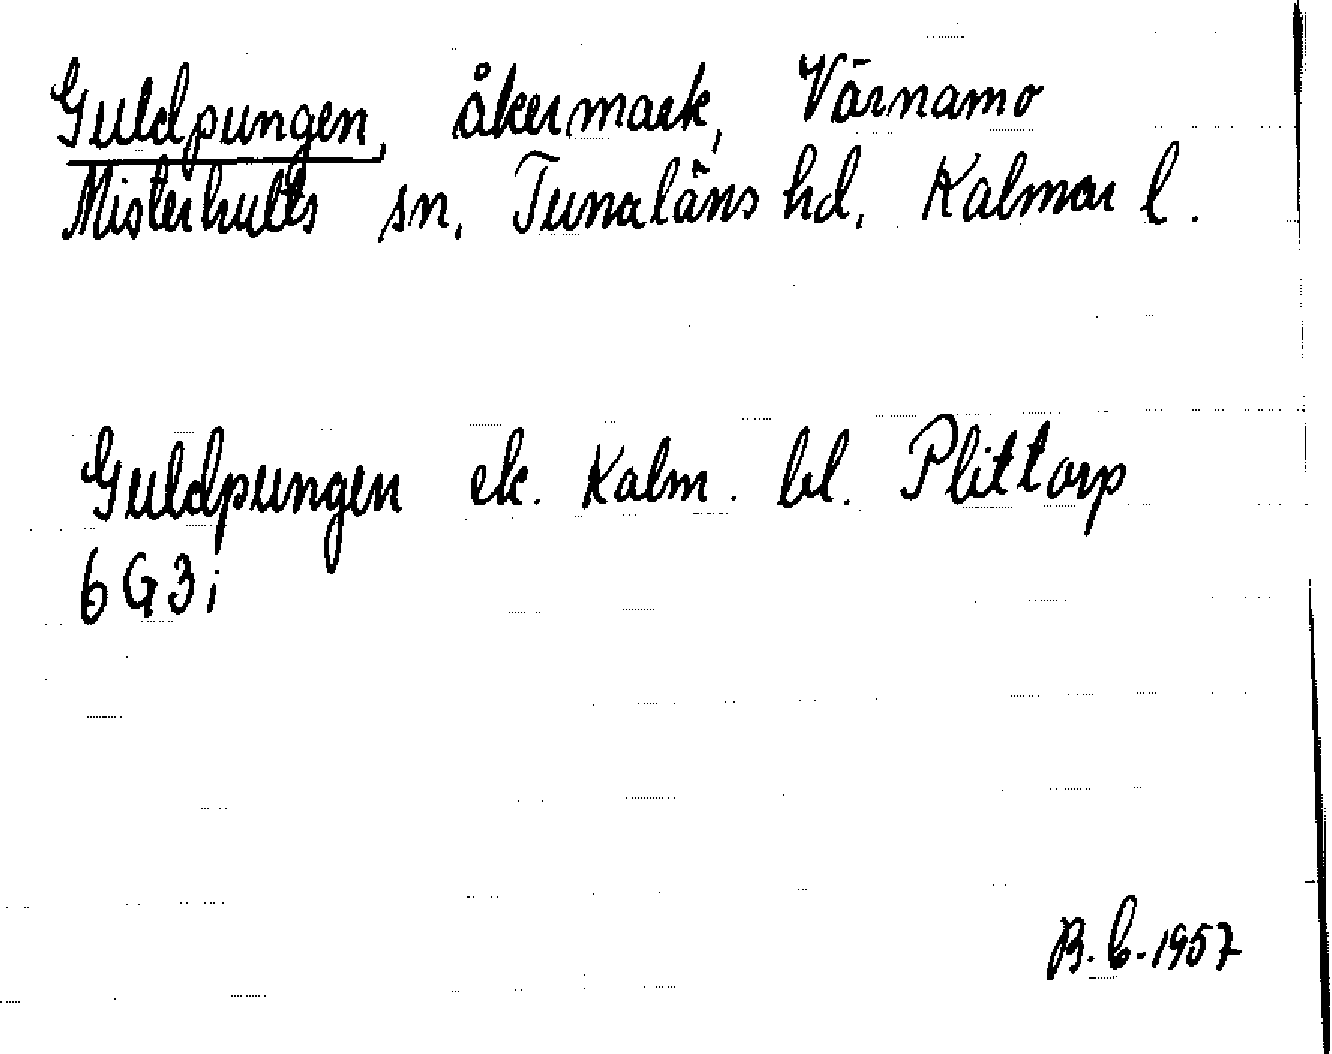 Guldpungen, åkermark, Värnamo
Misterhults sn, Tunaläns hd, Kalmar l.
Guldpungen ek. Kalm. bl. Plittorp
6G3i
B.b.1957